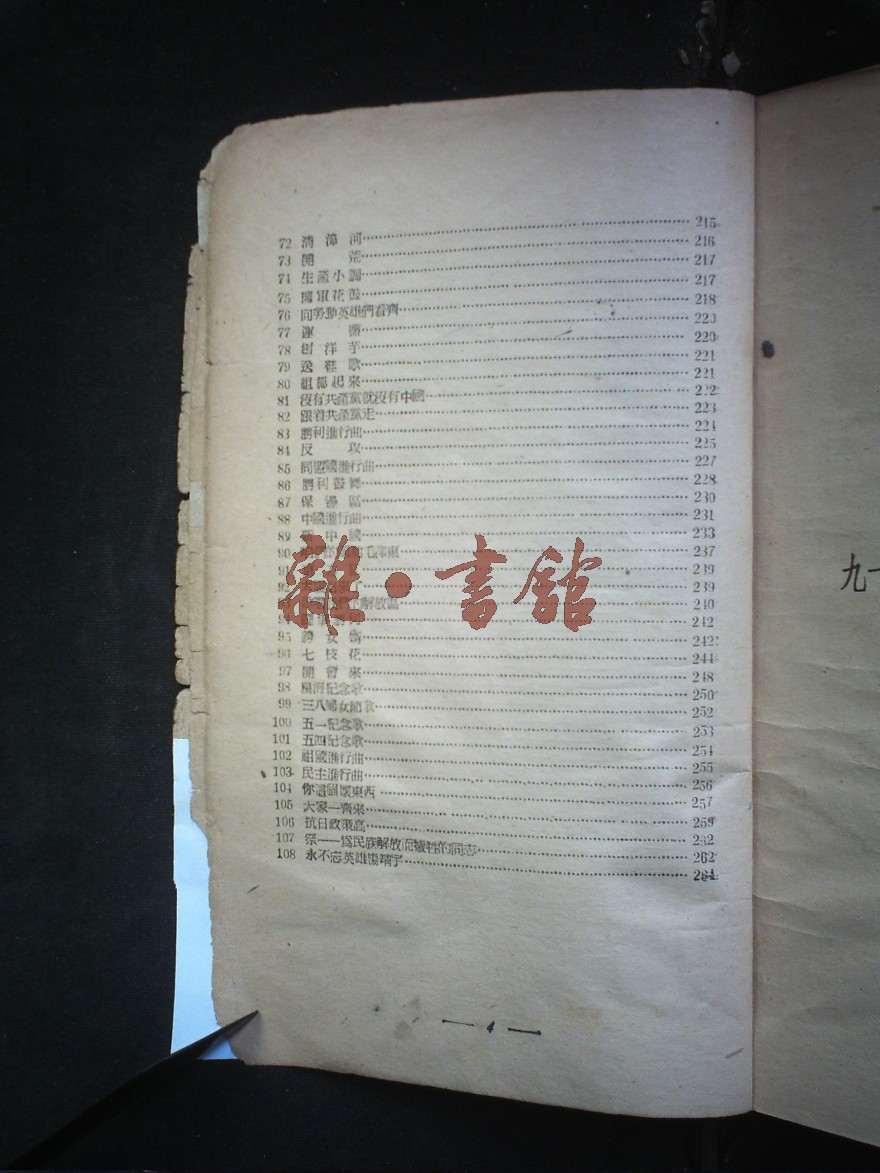 72 清漳河 215
73 開荒 216
74 生產小調 217
75 擁軍花鼓 217
76 向勞動英雄們看齊 218
77 運鹽 220
78 刨洋芋 220
79 送鞋歌 221
80 組織起來 221
81 沒有共產黨就沒有中國 222
82 跟着共產黨走 223
83 勝利進行曲 224
84 反攻 225
85 同盟國進行曲 227
86 勝利鼓舞 228
87 保邊區 230
88 中國進行曲 231
89 中國 233
90 毛澤東 237
91 239
92 239
93 解放區 240
94 242
95 242
96 七枝花 244
97 開會來 248
98 星海紀念歌 250
99 三八婦女節歌 252
100 五一紀念歌 253
101 五四紀念歌 254
102 祖國進行曲 255
103 民主進行曲 256
104 你這個壞東西 257
105 大家一齊來 259
106 抗日政策高
107 祭——爲民族解放而犧牲的同志 262
108 永不忘英雄楊靖宇 264
— 4 —
雜·書館
九一